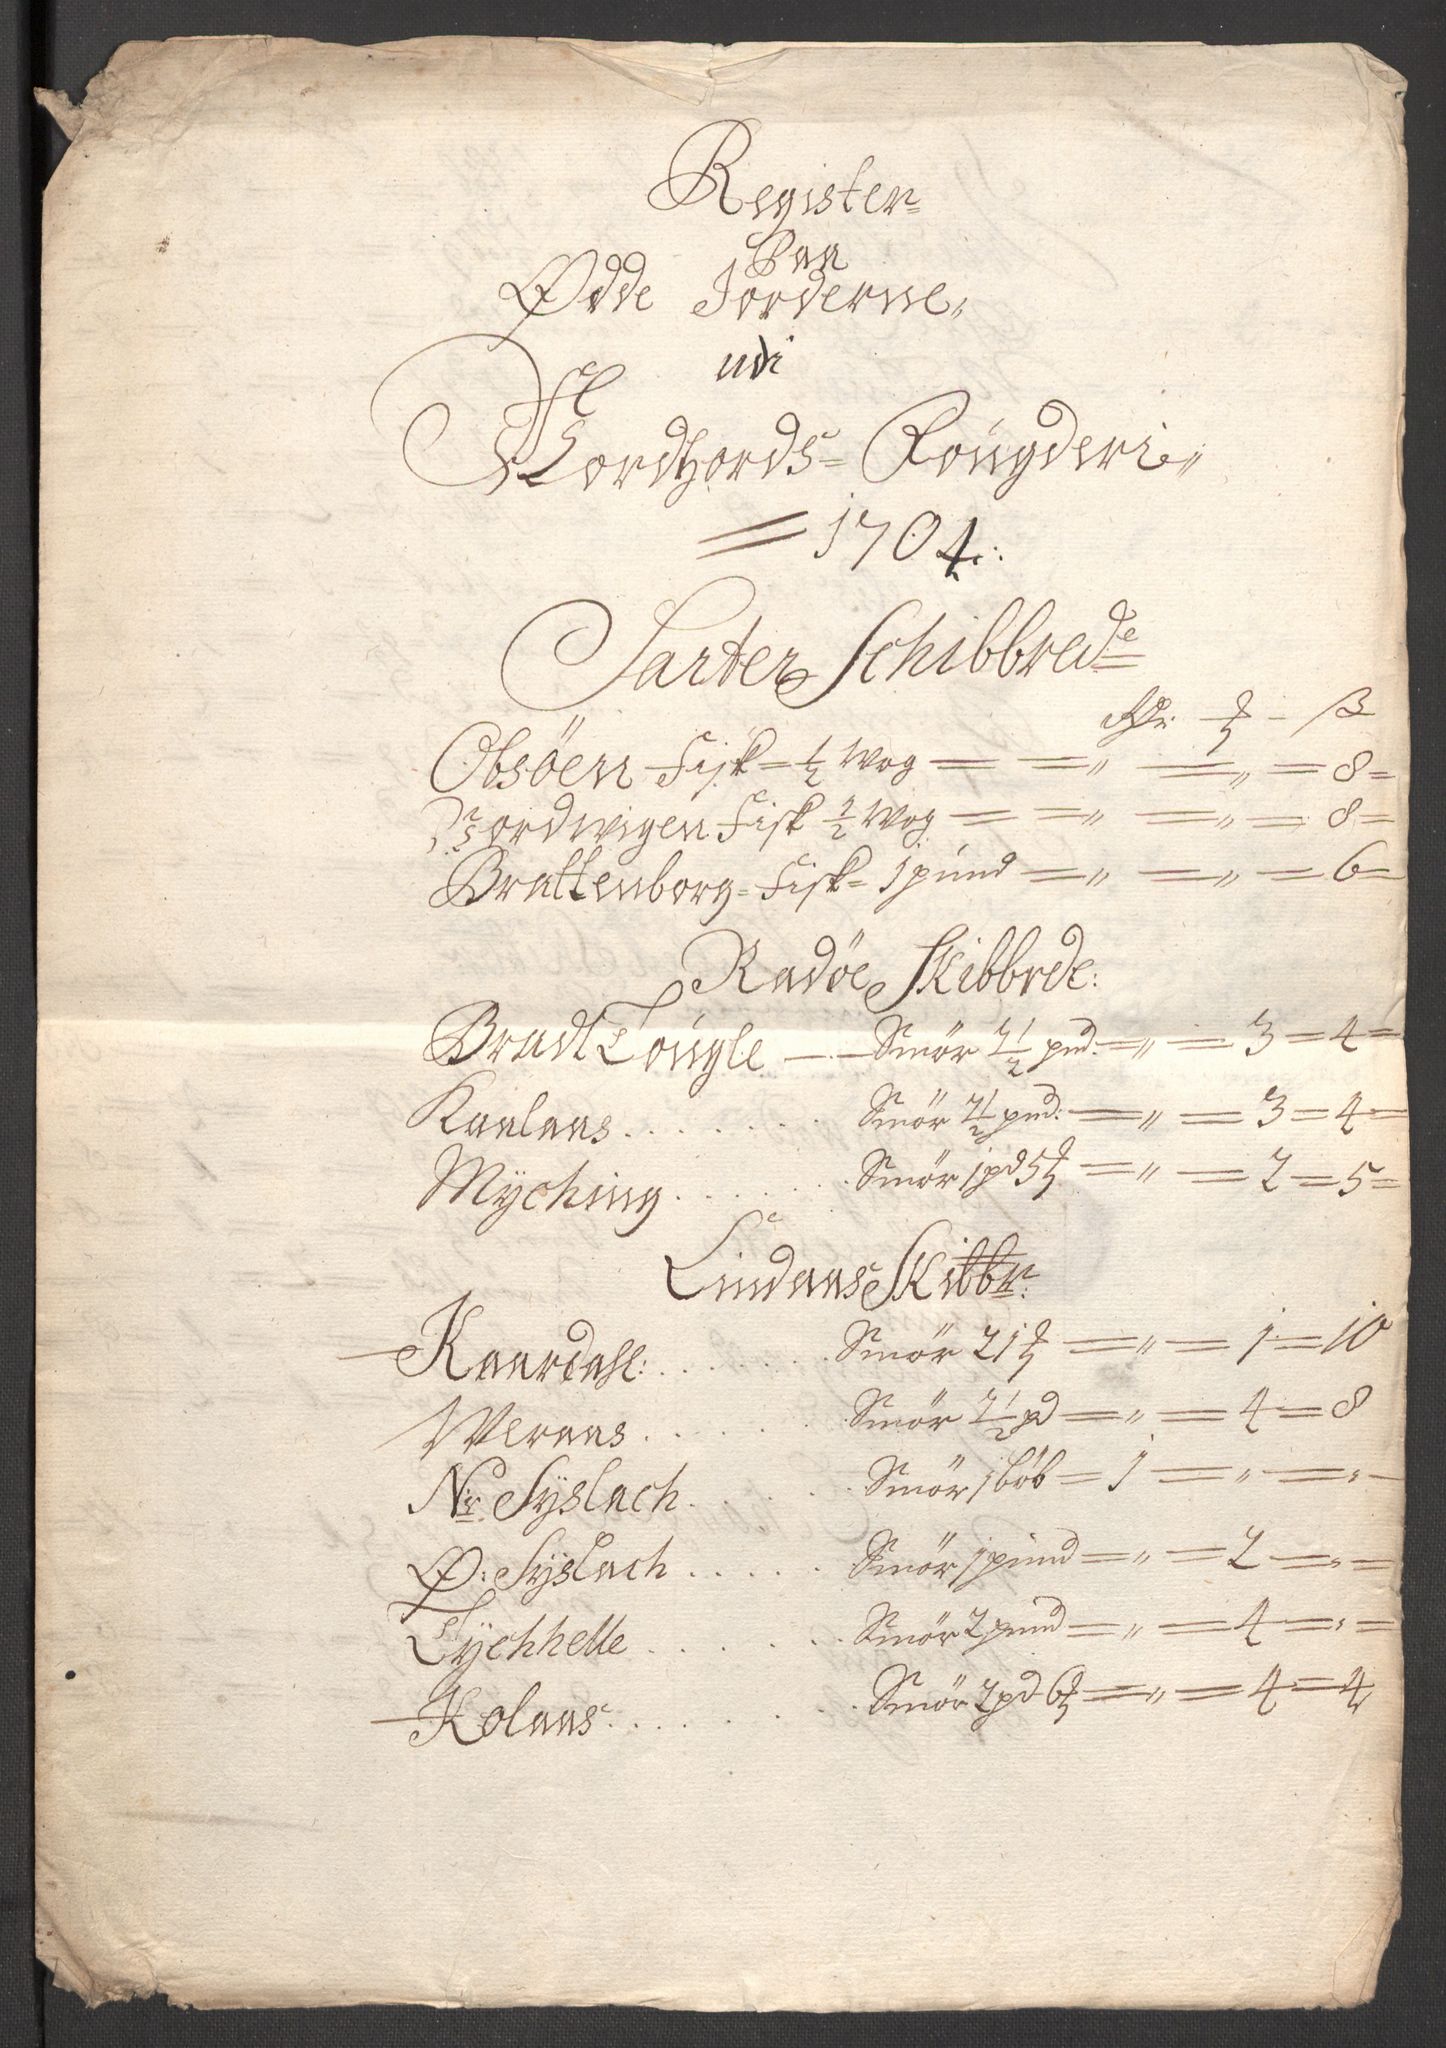 Register
Paa
Ødde Jorderne
udi
Nordhords Fougderi
1704
Sarter Schibbrede
Rdr ß
Obsöen Fisk ½ Wog 8
Nordwigen Fisk ½ Wog 8
Brattenborg Fisk 1 pund 6
Radöe Skibbrde:
Bradt Tougle Smör 2½ pnd: 3 4
Kaalaas Smör 2½ pnd: 3 4
Myching Smör 1 pd 5 2 5
Lindaas Skibbr:
Kaardahl: Smör 21 1 10
Weraas Smör 2½ pd 4 8
Nr: Syslach Smör 1 löb 1
Ø: Syslach Smör 1 pund 2
Tychhelle Smör 2 pund 4
Kolaas Smör 2 pd 6 4 4